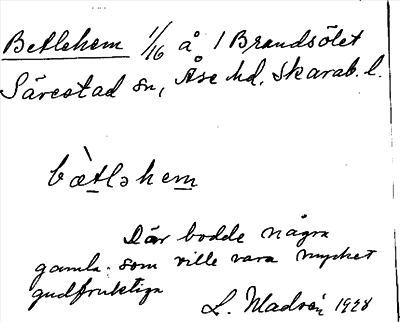 Betlehem 1/16 å 1 Brandsölet
Särestad sn, Åse hd, Skarab. l.
bæ̀tləhem
Där bodde några
gamla som ville vara mycket
gudfruktiga
L. Madsén 1928